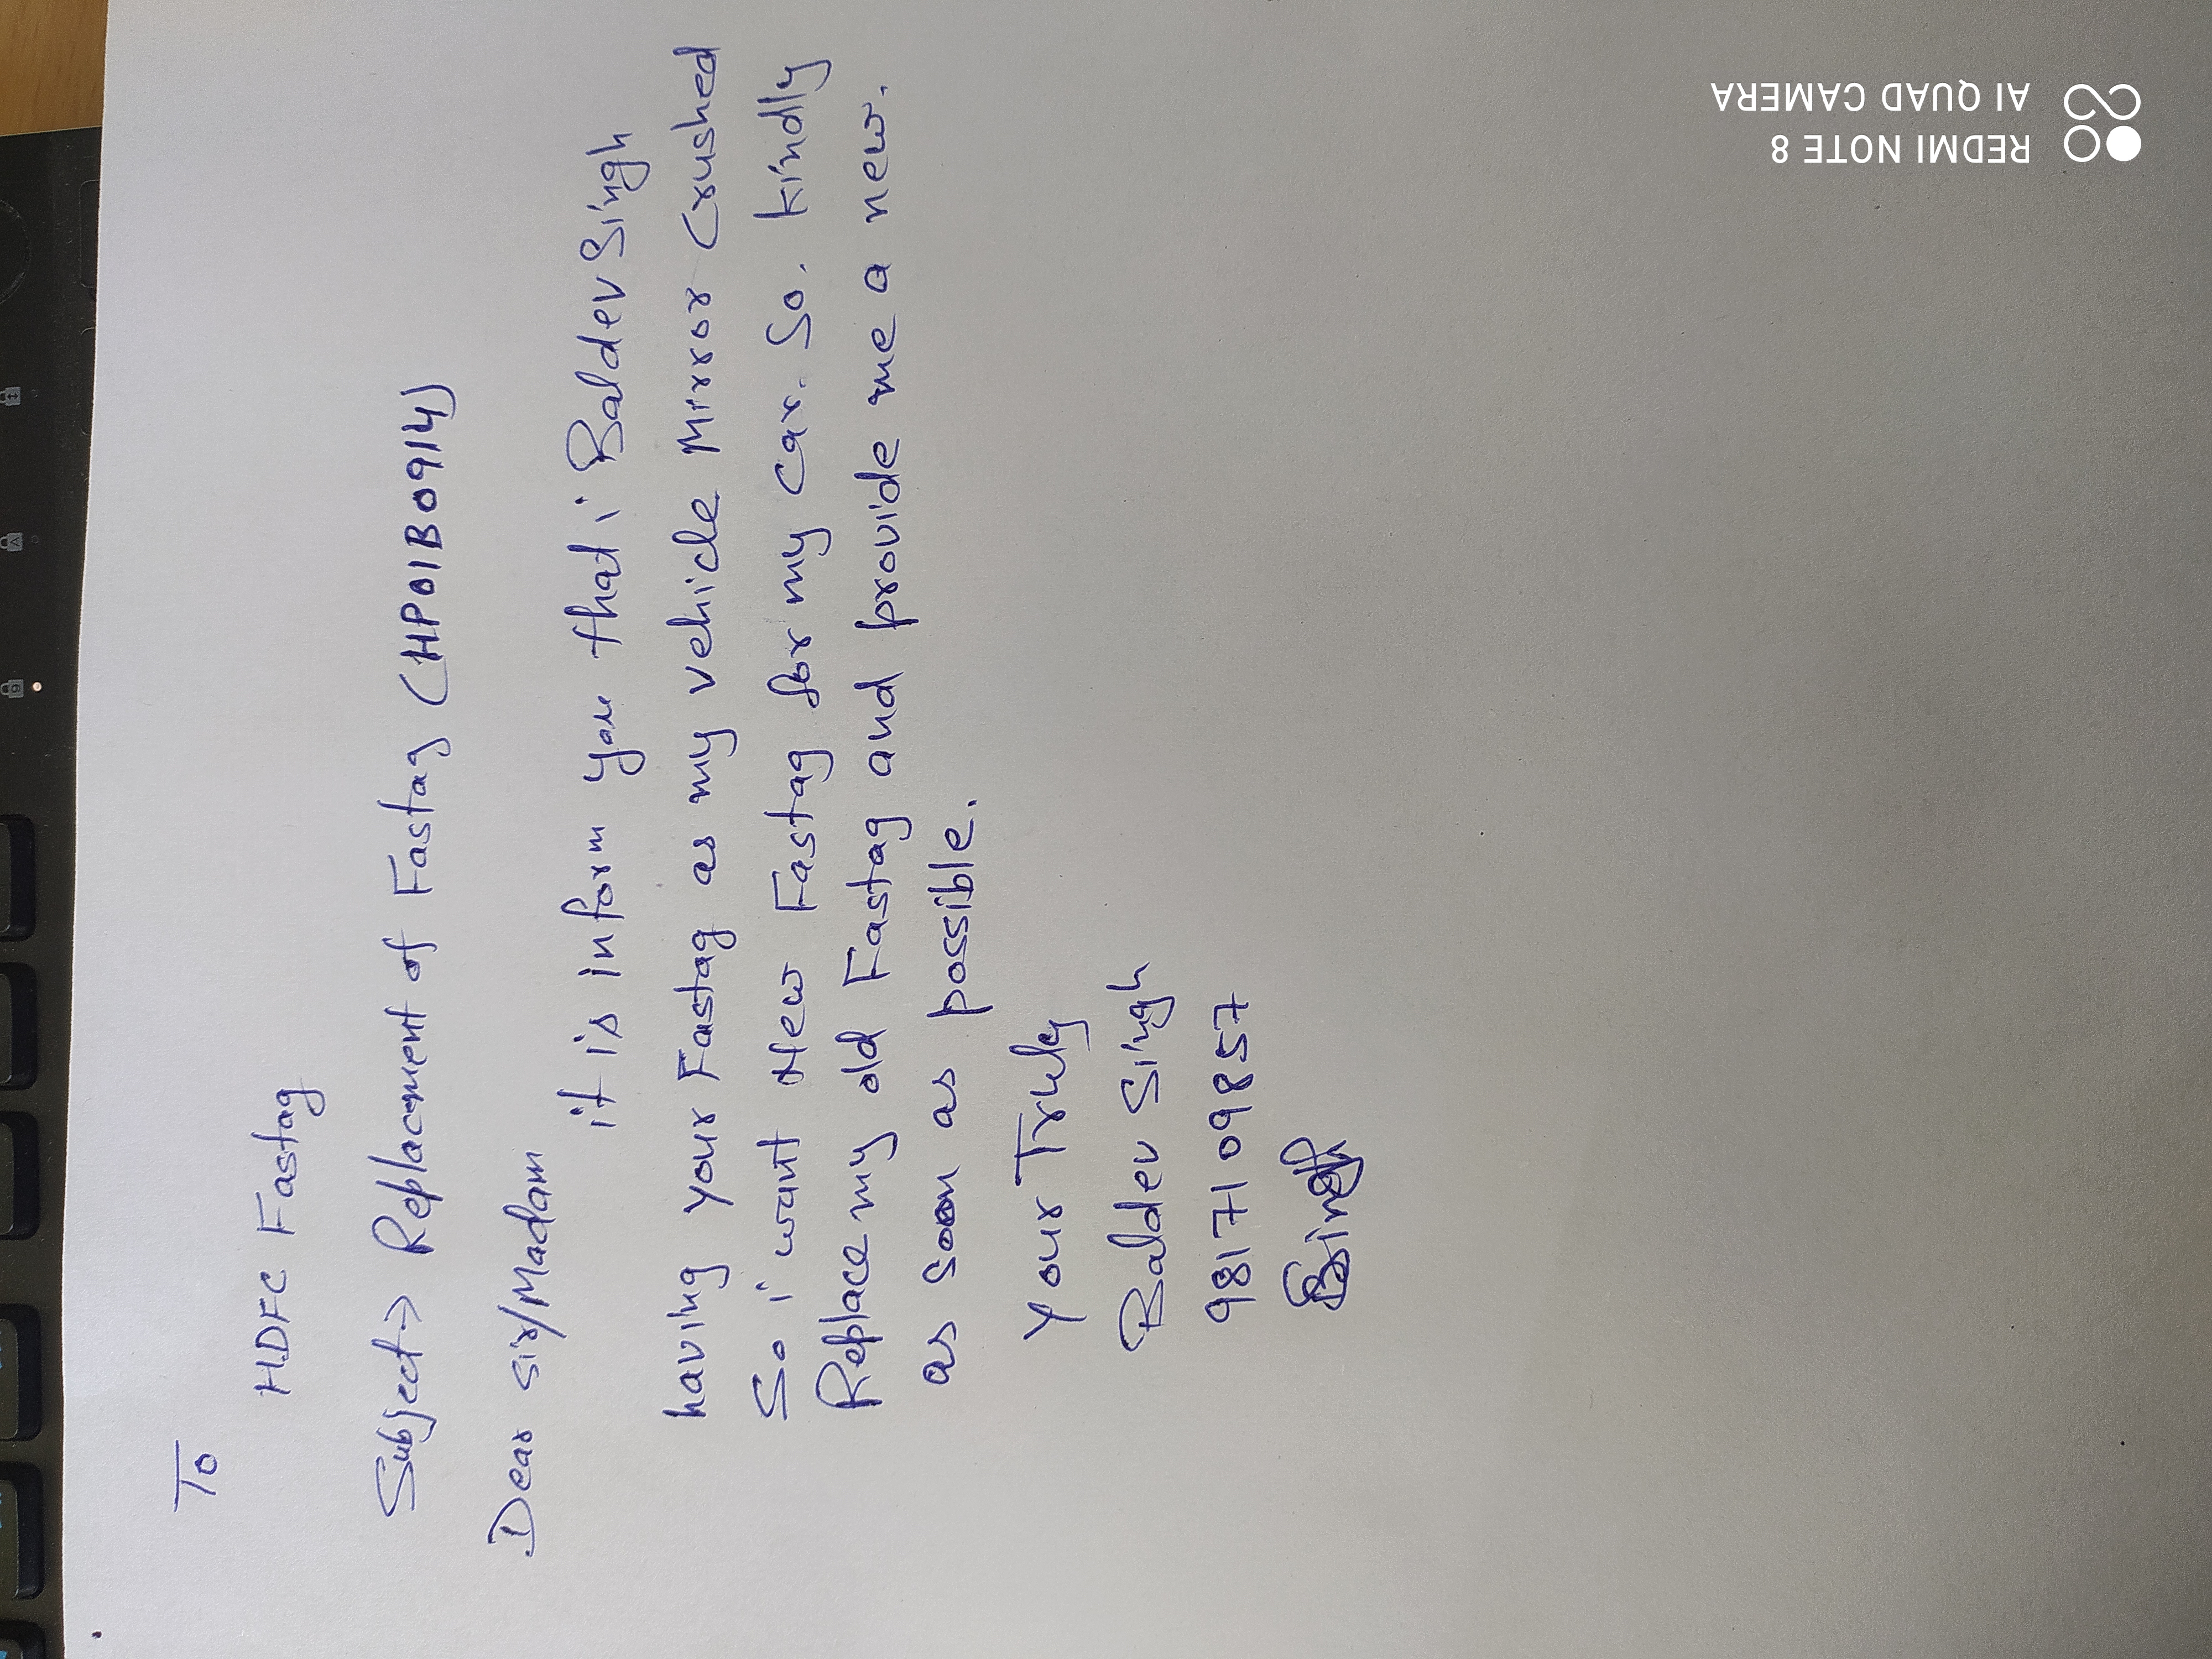 To
HDFC Fastag
Subject → Replacment of Fastag (HP01B0914)
Dear sir/Madam
it is inform you that i Baldev Singh
having your Fastag as my vehicle Mirror Crushed
So i want New Fastag for my Car. So. kindly
Replace my old Fastag and provide me a new.
as soon as possible.
Your Truly
Baldev Singh
9817109857
REDMI NOTE 8
AI QUAD CAMERA